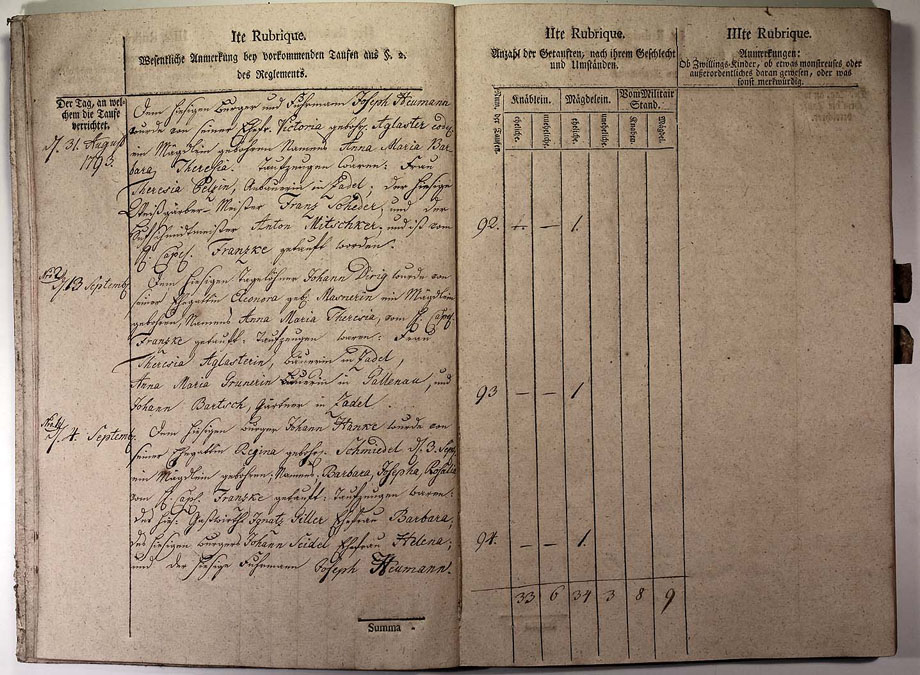 Ite Rubrique.
Wesentliche Anmerkung bey vorkommenden Taufen aus §. 2.
des Reglements.
Der Tag, an wel-
chem die Taufe
verrichtet.
d. 31. August
1793.
Dem hiesigen Bürger und Fuhrmann Joseph Heumann
wurde von seiner Ehefr. Victoria gebohr. Aglaster
ein Mägdlein gebohren Namens Anna Maria Bar-
bara, Theresia. Taufzeugen waren: Frau
Theresia in Zadel; der hiesige
Weißgärber-Meister Franz und der
Anton Mitschker, und ist vom
H. Capl. Franzke getauft worden.
d. 13 Septemb.
Dem hiesigen Tagelöhner Johann Dirig wurde von
seiner Ehegattin Eleonora geb. Masnerin ein Mägdlein
gebohren, Namens Anna Maria Theresia, vom H. Capl.
Franzke getauft: Taufzeugen waren: Frau
Theresia Aglasterin, Bäuerin in Zadel,
Anna Maria Grunerin Bäuerin in und
Johann Bartsch, Gärtner in Zadel
d. 4. Septemb.
Dem hiesigen Bürger Johann Hanke wurde von
seiner Ehegattin Regina gebohr. Schmiedel d. 3. Sept.
ein Mägdlein gebohren, Namens Barbara, Josepha, Rosalia
vom H. Capl. Franzke getauft: Taufzeugen waren:
des hies. Gastwirths Ignatz Ehefrau Barbara;
des hiesigen Bürgers Johann Seidel Ehefrau Helena;
und der hiesige Fuhrmann Joseph Heumann.
Summa
IIte Rubrique.
Anzahl der Getauften, nach ihrem Geschlecht
und Umständen.
Num. der Taufen.
Knäblein.
Mägdelein.
Vom Militair
Stand.
eheliche.
uneheliche.
eheliche.
uneheliche.
Knaben.
Mägdel.
92. — — 1.
93 — — 1
94. — — 1.
33 6 34 3 8 9
IIIte Rubrique.
Anmerkungen:
Ob Zwillings-Kinder, ob etwas monstreuses oder
außerordentliches daran gewesen, oder was
sonst merkwürdig.